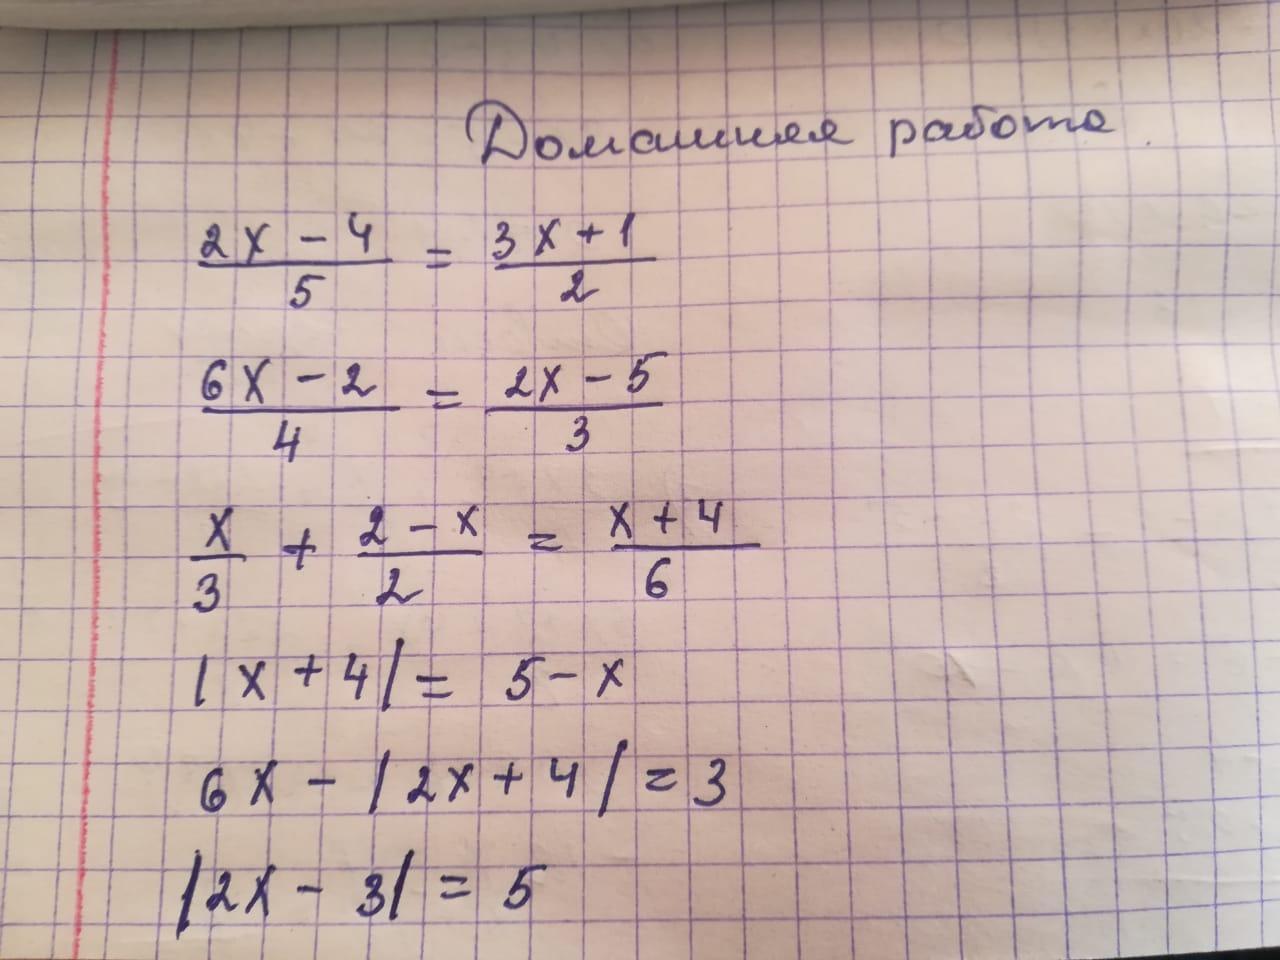 Домашняя работа
2x - 4 / 5 = 3x + 1 / 2
6x - 2 / 4 = 2x - 5 / 3
x / 3 + 2 - x / 2 = x + 4 / 6
|x + 4| = 5 - x
6x - |2x + 4| = 3
|2x - 3| = 5